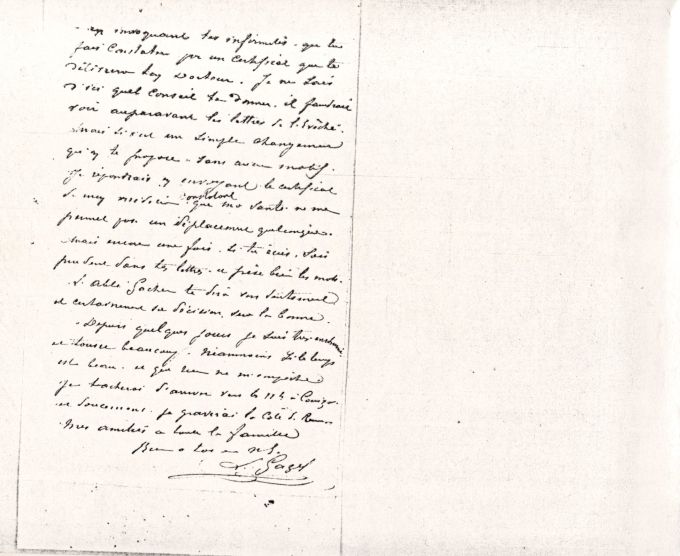 en invoquant tes infirmités. que tu
fais constater par un certificat que te
délivrera ton Docteur. Je ne sais
d'ici quel conseil te donner. il faudrait
voir auparavant les lettres de l'Evêché.
mais si c'est un simple changement
qu'on te propose. sans aucun motif.
Je répondrais en envoyant le certificat
de mon médecin constatant que ma santé ne me
permet pas un déplacement quelconque.
mais encore une fois. si tu écris. sois
prudent dans tes lettres. et pèse bien les mots.
L'abbé te dira son sentiment
et certainement sa décision sera la bonne.
Depuis quelques jours je suis très enrhumé
et tousse beaucoup. Néanmoins si le temps
est beau. et que rien ne m'empêche
je tacherai d'arriver vers les 11h à
et doucement je gravirai la Côte de
Mes amitiés à toute la famille
Bien à toi en